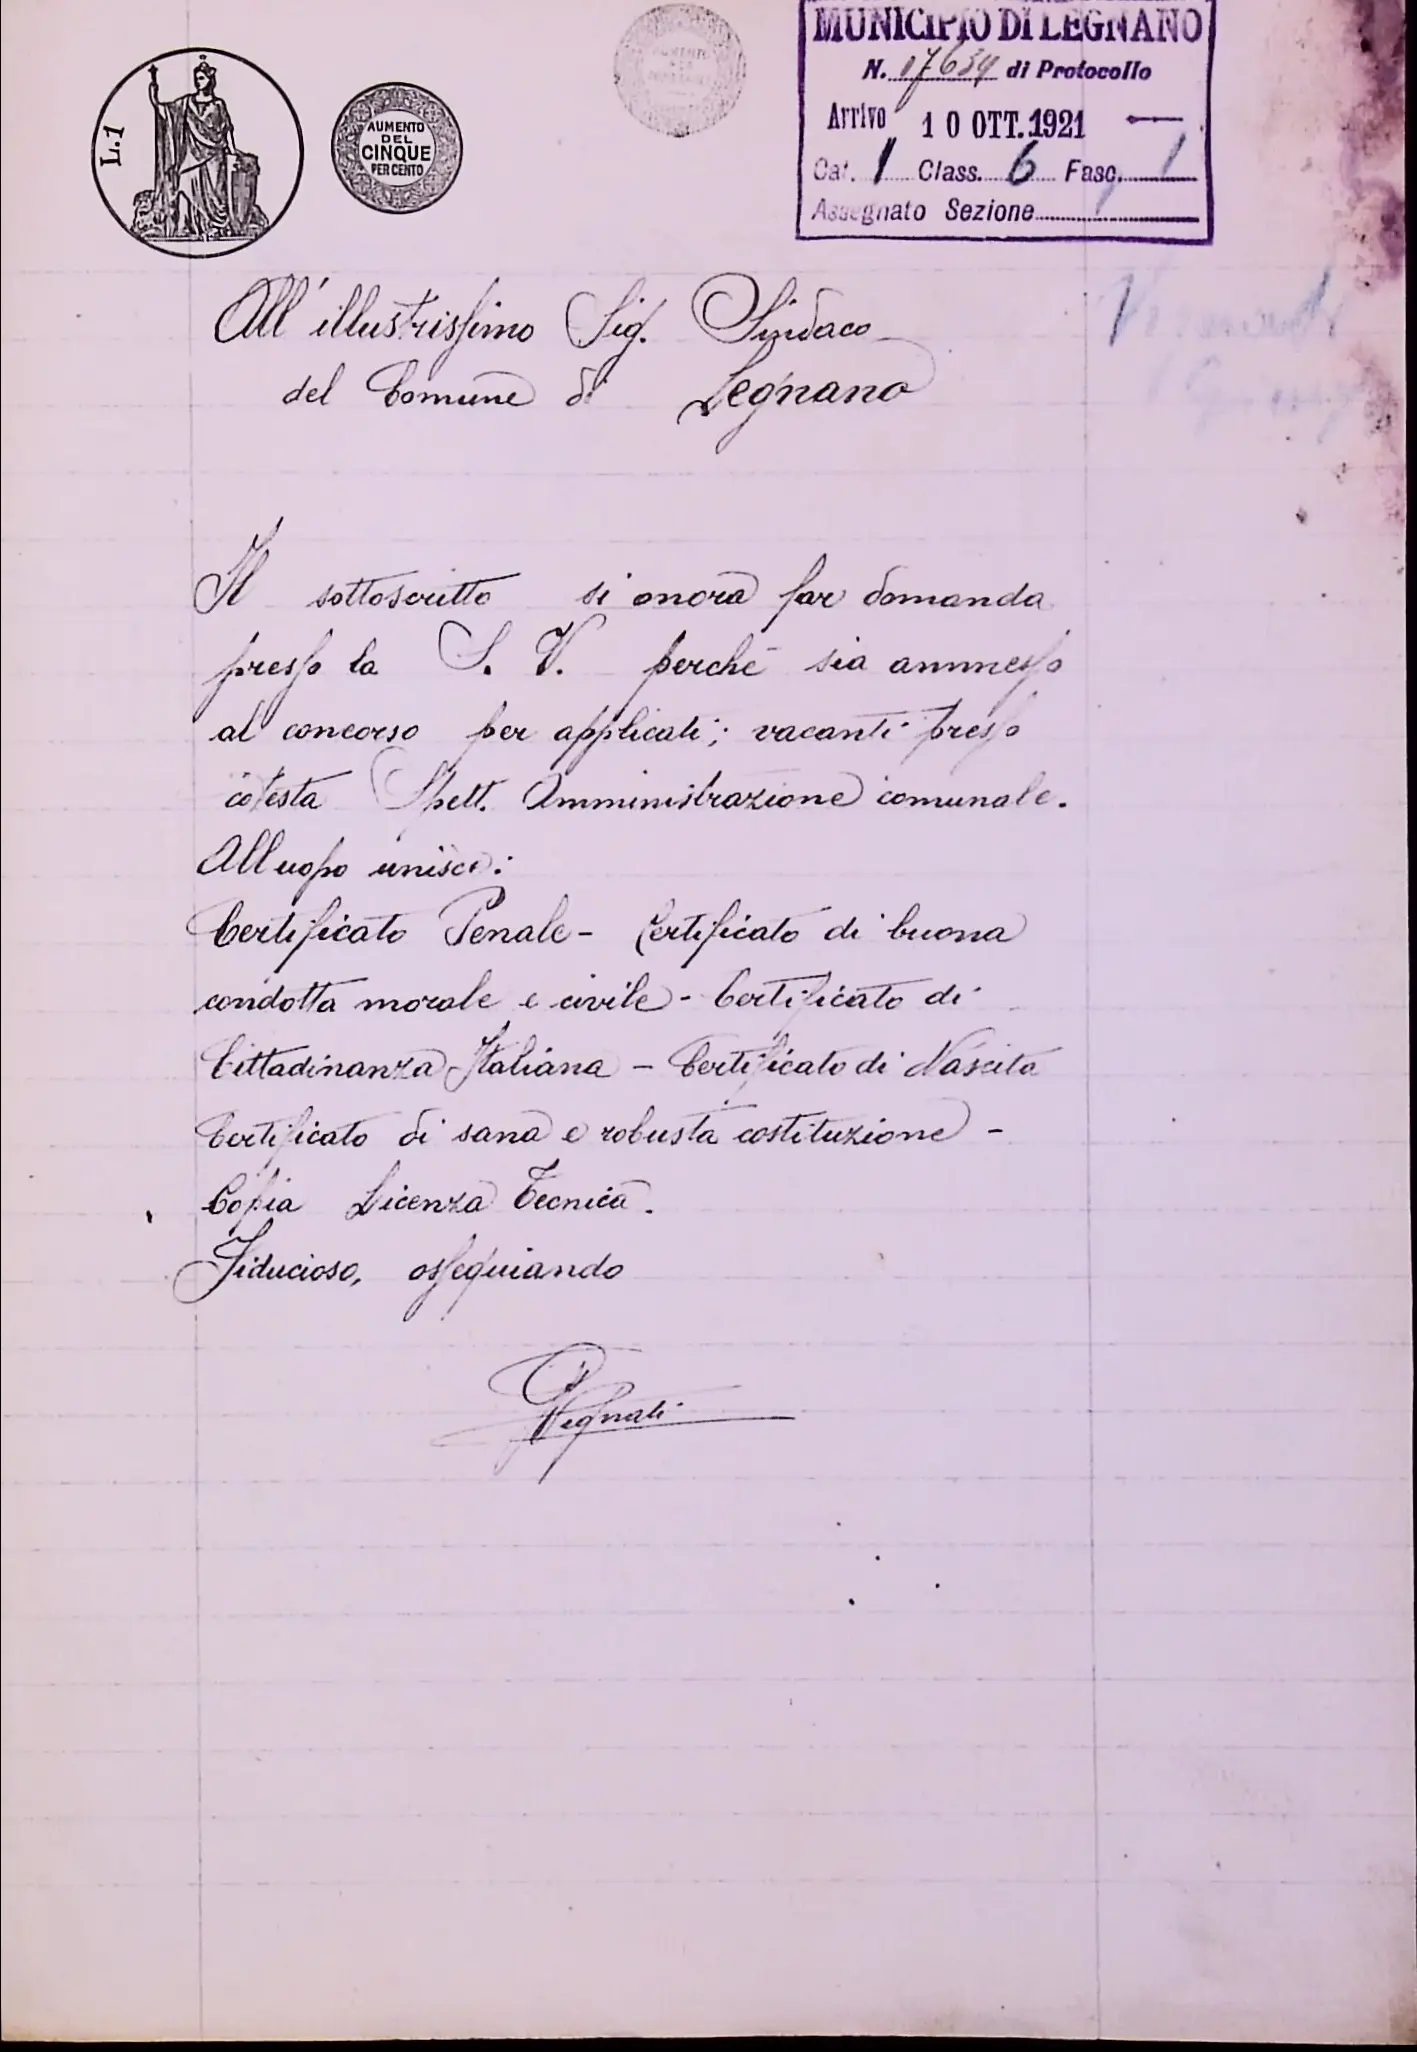 L.1
AUMENTO
DEL
CINQUE
PER CENTO
MUNICIPIO DI LEGNANO
N. 17634 di Protocollo
Arrivo 10 OTT. 1921
Cat. 1 Class. 6 Fasc. 1
Assegnato Sezione
All'illustrissimo Sig. Sindaco
del Comune di Legnano
Il sottoscritto si onora far domanda
presso la S. V. perchè sia ammesso
al concorso per applicati; vacanti presso
cotesta Spett. Amministrazione comunale.
All'uopo unisce:
Certificato Penale - Certificato di buona
condotta morale e civile - Certificato di
Cittadinanza Italiana - Certificato di Nascita
Certificato di sana e robusta costituzione -
Copia Licenza Tecnica.
Fiducioso, ossequiando